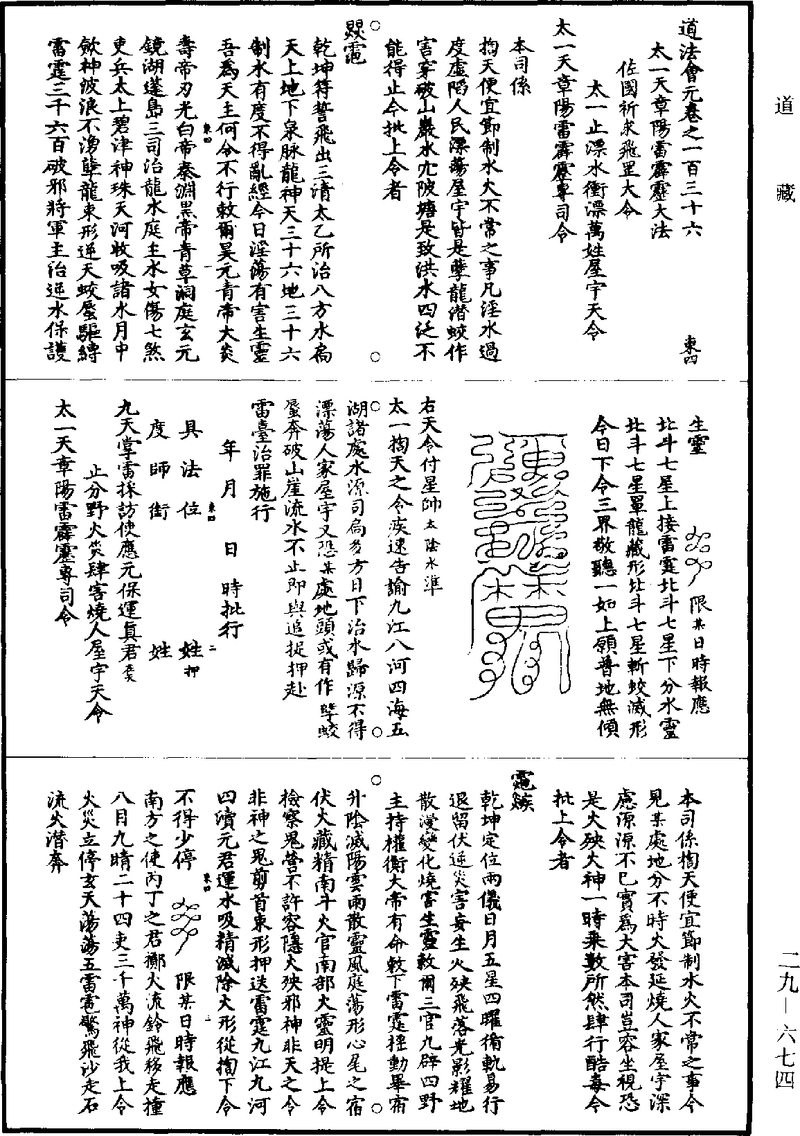 道法會元卷之一百三十六
東四
太一天章陽雷霹靂大法
佐國祈求飛罡大令
太一止漂水衝漂萬姓屋宇天令
太一天章陽雷霹靂專司令
本司係
掏天便宜節制水火不常之事凡淫水過
度虛陷人民漂蕩屋宇皆是孽龍潛蛟作
害穿破山巖水穴陂塘是致洪水四泛不
能得止今批上令者
乾坤符誓飛出三清太乙所治八方水扃
天上地下泉脉龍神天三十六地三十六
制水有度不得亂經今日淫蕩有害生靈
吾為天王何令不行敕爾昊元青帝大炎
壽帝刃光白帝秦淵黑帝青草洞庭玄元
東四
鏡湖蓬島三司治龍水庭主水女傷七煞
吏兵太上碧津神珠天河收吸諸水月中
歛神波浪不湧孽龍束形逆天蛟蜃驅縛
雷霆三千六百破邪將軍主治逆水保護
生靈
限某日時報應
北斗七星上接雷霆北斗七星下分水靈
北斗七星罩龍藏形北斗七星斬蛟滅形
今日下令三界敬聽一如上願普地無傾
右天令付星帥太陰水準
太一掏天之令疾速告諭九江八河四海五
湖諸處水源司扃多方日下治水歸源不得
漂蕩人家屋宇又恐某處地頭或有作孽蛟
蜃奔破山崖流水不止即與追捉押赴
雷臺治罪施行
年月 日 時批行
具法位 姓押
東四
二
度師銜 姓
九天掌雷採訪使應元保運真君
止分野火災肆害燒人屋宇天令
太一天章陽雷霹靂專司令
本司係掏天便宜節制水火不常之事今
見某處地分不時火發延燒人家屋宇深
慮源源不已實為大害本司豈容坐視恐
是火殃火神一時乘數所然肆行酷毒今
批上令者
乾坤定位兩儀日月五星四曜衛軌易行
退留伏逆災害妄生火殃飛落光影耀地
散漫變化燒害生靈敕爾三官九辟四野
主持權衡大帝有命敕下雷霆搖動畢宿
升陰滅陽雲雨散靈風庭蕩形心尾之宿
伏火藏精南斗火官南部火靈明提上令
檢察鬼營不許容隱火殃邪神非天之令
非神之鬼剪首束形押送雷霆九江九河
四瀆元君運水吸精滅除火形從掏下令
東四
不得少停
限某日時報應
南方之使丙丁之君擲火流鈴飛移走撞
八月九晴二十四吏三千萬神從我上令
火災立停玄天蕩蕩五雷雹驚飛沙走石
流火潛奔
道藏
二九—六七四